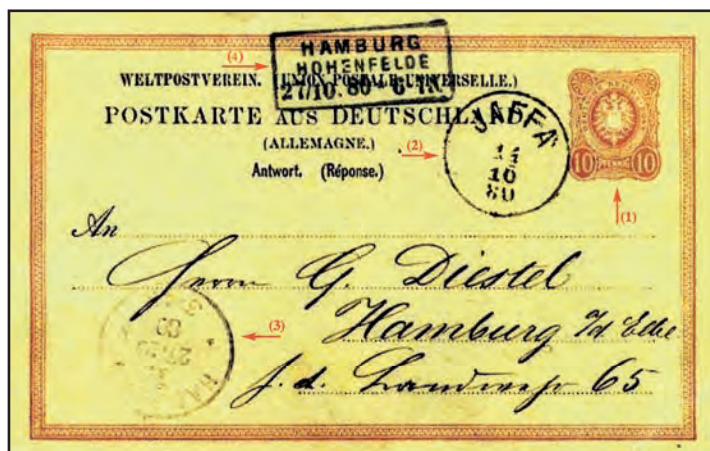 (4)
HAMBURG
HOHENFELDE
27/10. 80
WELTPOSTVEREIN. (UNION POSTALE UNIVERSELLE.)
POSTKARTE AUS DEUTSCHLAND
(ALLEMAGNE.)
Antwort. (Réponse.)
(2)
JAFFA
10
80
10 PFENNIG 10
(1)
An
Herrn G. Diestel
(3)
Hamburg
HA
80
Landwehr 65